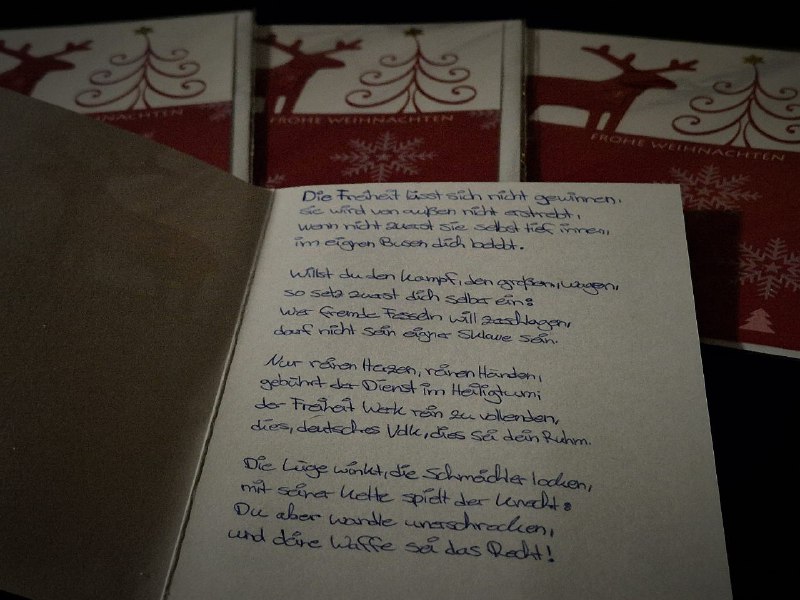 FROHE WEIHNACHTEN
FROHE WEIHNACHTEN
Die Freiheit lässt sich nicht gewinnen,
sie wird von außen nicht erstrebt,
wenn nicht zuerst sie selbst tief innen,
im eignen Busen dich belebt.
Willst du den Kampf, den großen, wagen,
so setz zuerst dich selber ein:
Wer fremde Fesseln will zerschlagen,
darf nicht sein eigner Sklave sein.
Nur reinen Herzen, reinen Händen,
gebührt der Dienst im Heiligtum;
der Freiheit Werk rein zu vollenden,
dies, deutsches Volk, dies sei dein Ruhm.
Die Lüge winkt, die Schmeichler locken,
mit seiner Kette spielt der Knecht:
Du aber wandle unerschrocken,
und deine Waffe sei das Recht!